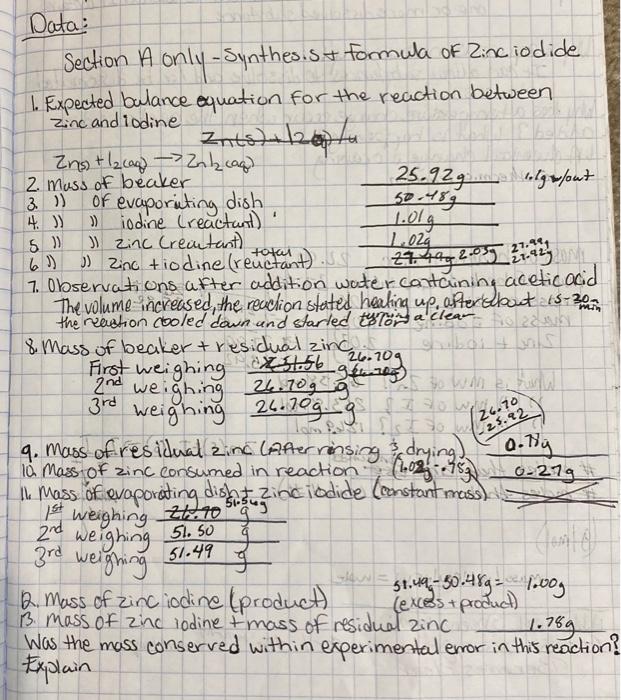 Data:
Section A only - Synthesis + formula of Zinc iodide
1. Expected balance equation for the reaction between
zinc and iodine
Zn(s) + I2
Zn(s) + I2(aq) → ZnI2(aq)
2. Mass of beaker 25.92g w/out
3. )) of evaporating dish 50.48g
4. )) )) iodine (reactant) 1.01g
5 )) )) zinc (reactant) 1.02g
6 )) )) zinc + iodine (reactant) total 2.03g 27.99g 27.92g
7. Observations after addition water containing acetic acid
The volume increased, the reaction stated heating up, after about 15-20 min
the reaction cooled down and started a clear
8. Mass of beaker + residual zinc
First weighing 51.56 g 26.70g
2nd weighing 26.70g g
3rd weighing 26.70g g
26.70
25.92
9. Mass of residual zinc (After rinsing & drying) 0.78g
10. Mass of zinc consumed in reaction (1.02g - .78g) 0.27g
11. Mass of evaporating dish + zinc iodide (constant mass)
1st weighing 26.70 51.56g g
2nd weighing 51.50 g
3rd weighing 51.49 g
51.49g - 50.48g =
12. Mass of zinc iodine (product) (excess + product) 1.00g
13. Mass of zinc iodine + mass of residual zinc 1.78g
Was the mass conserved within experimental error in this reaction?
Explain